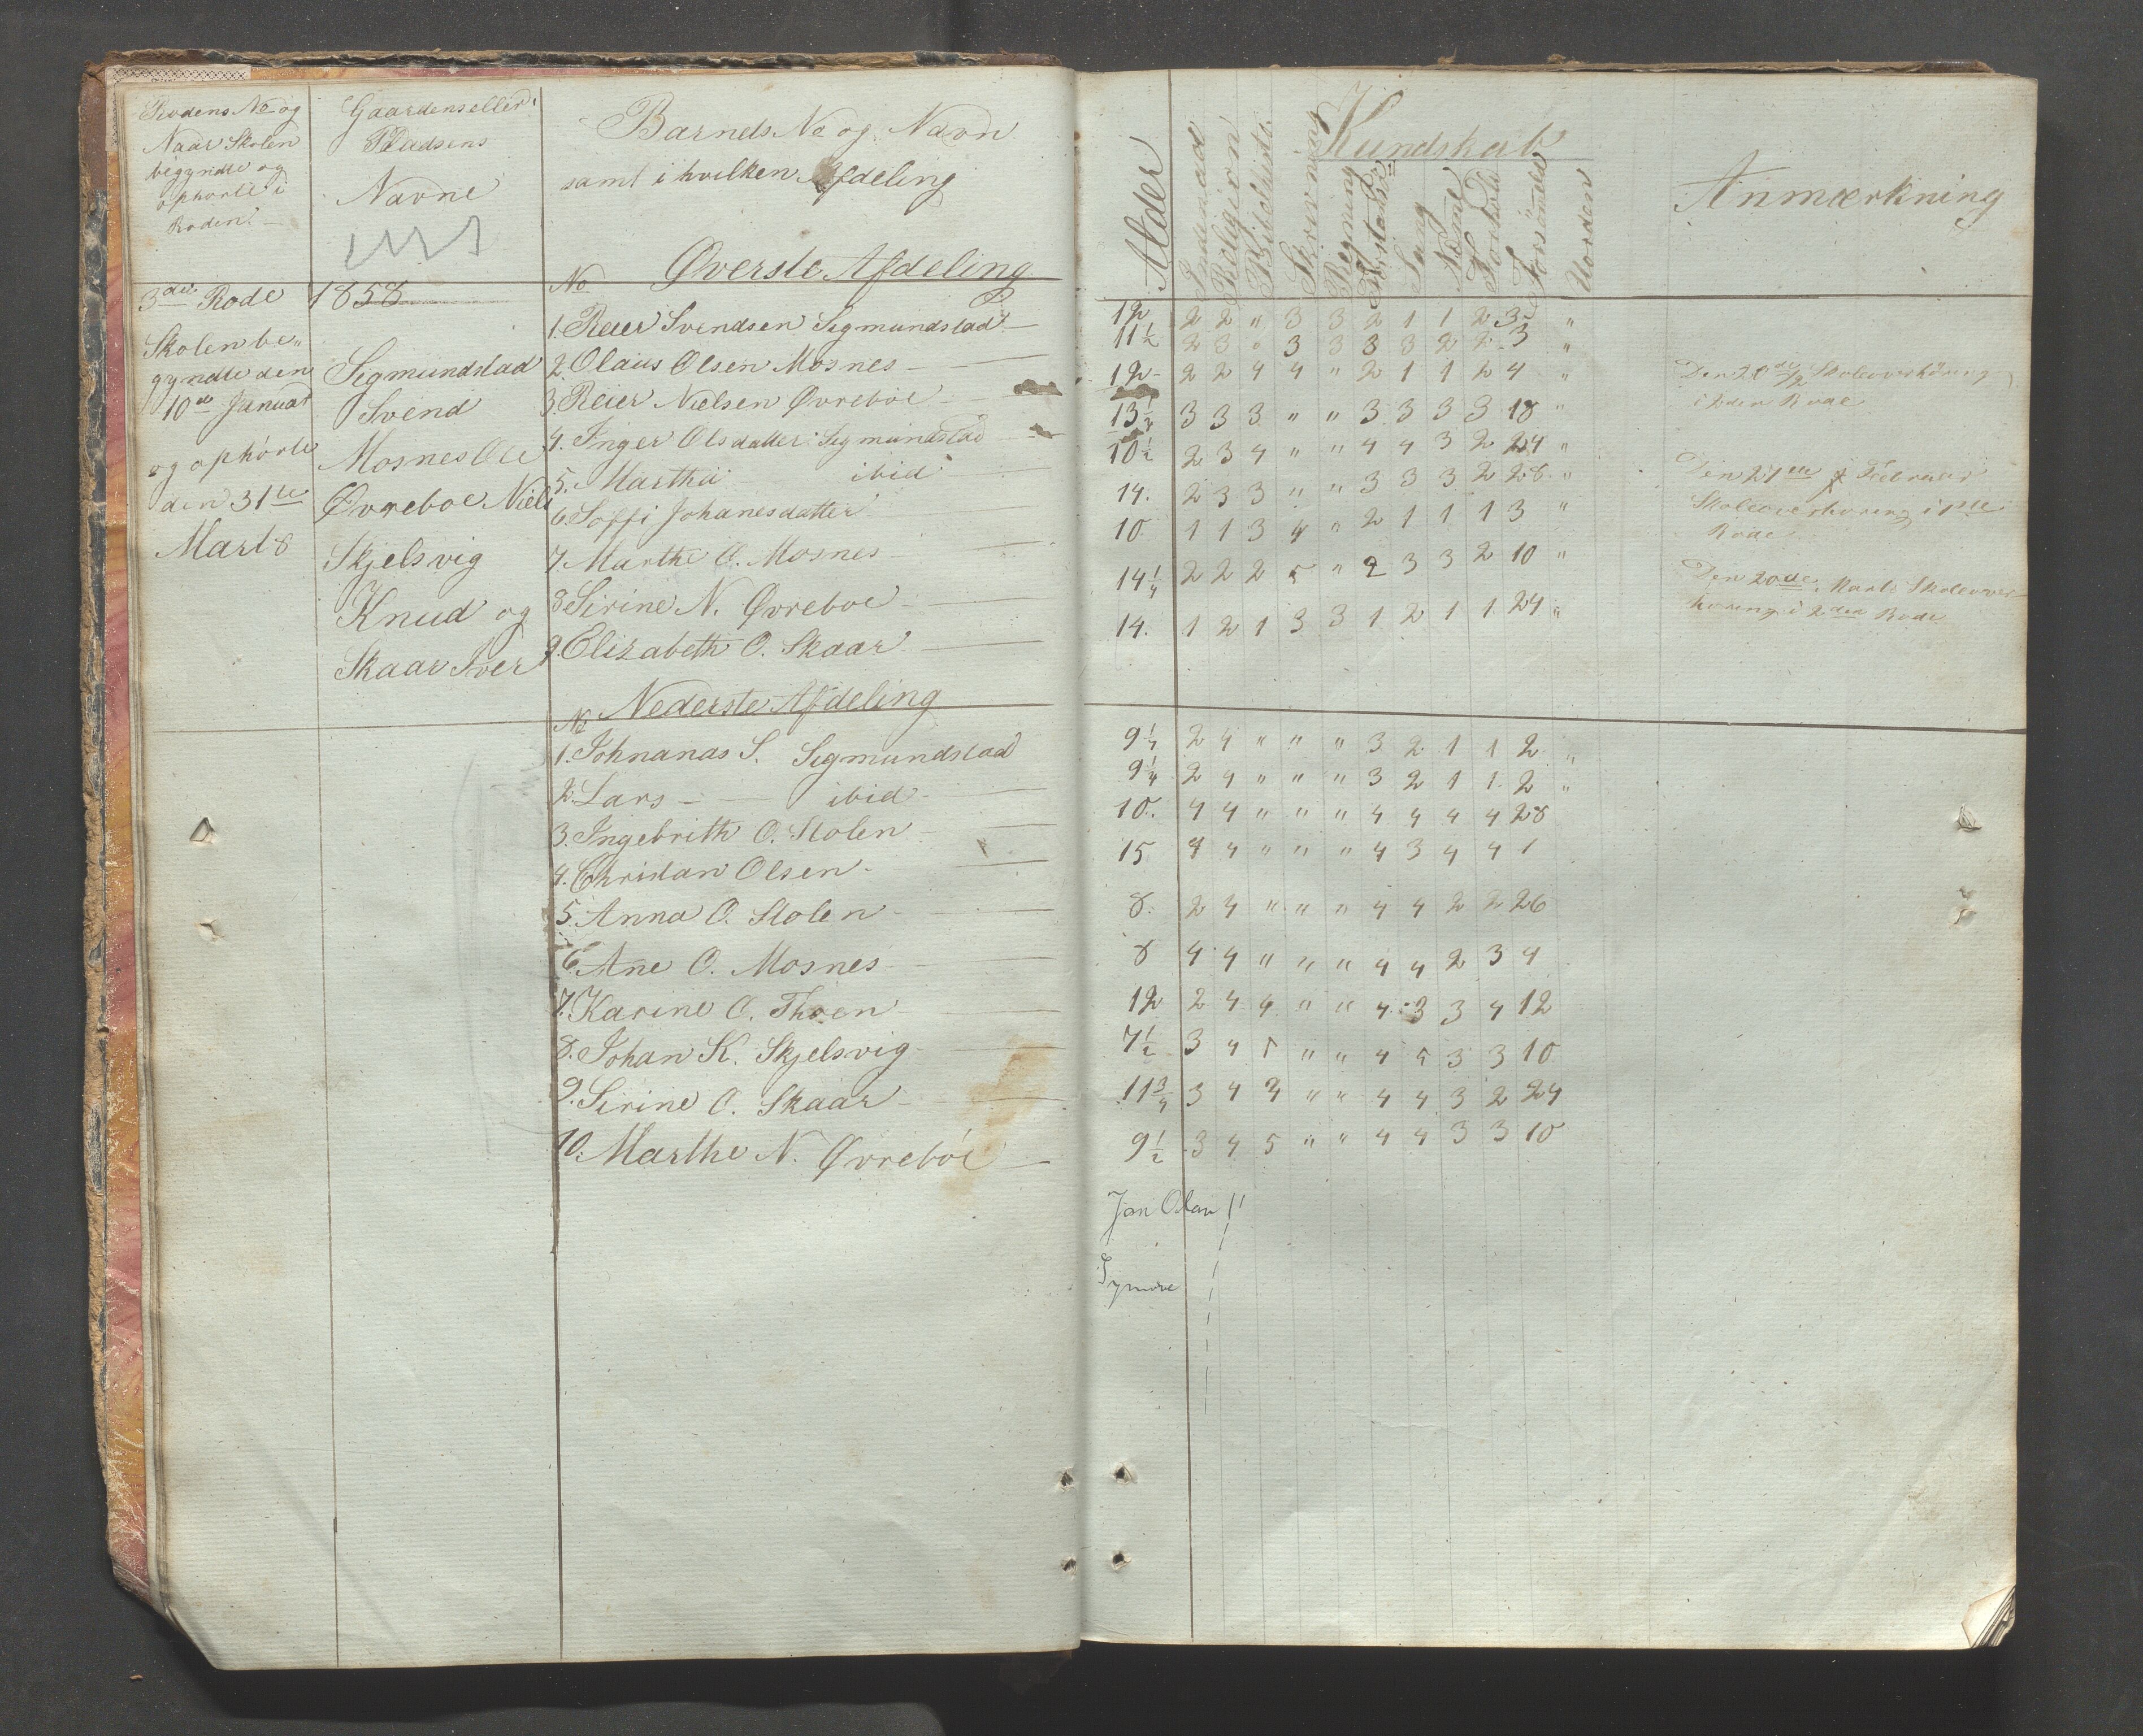 Rodens No og
Naar Skolen
begyndte og
ophørte i
Roden.
Gaardens eller
Pladsens
Navne
Barnets No og Navn
samt i hvilken Afdeling
Øverste Afdeling
No
3die Rode 1858
Skolen be„
gyndte den
10de Januar
og ophørte
den 31te
Marts
Sigmundstad
Svend
Mosnes Ole
Øvreboe Niels
Skjelsvig
Knud og
Skaar Iver
1. Reier Svendsen Sigmundstad
2. Olaus Olsen Mosnes
3. Reier Nielsen Øvreboe
4. Inger Olsdatter Sigmundstad
5. Martha ibid
6. Soffi Johanesdatter
7. Marthe O. Mosnes
8. Sirine N. Øvreboe
9. Elizabeth O. Skaar
No Nederste Afdeling
1. Johnanas S. Sigmundstad
2. Lars — ibid
3. Ingebrith O. Stolen
4. Christan Olsen
5. Anna O. Stolen
6. Ane O. Mosnes
7. Karine O. Thoen
8. Johan K. Skjelsvig
9. Sirine O. Skaar
10. Marthe N. Øvreboe
Kundskab
Alder
Indenad
Religion
Bibelhist.
Skrivning
Regning
Forstand
Sang
Næme
Forhold
Forsømmelse
Uorden
Anmærkning
12 2 2 " 3 3 2 1 1 2 3 "
11½ 2 3 " 3 3 3 3 2 2 3 "
12 2 2 4 4 " 2 1 1 2 4 "
13½ 3 3 3 " " 3 3 3 3 18 "
10½ 2 3 4 " " 4 4 3 2 24 "
14. 2 3 3 " " 3 3 3 2 28 "
10 1 1 3 4 " 2 1 1 1 3 "
14¼ 2 2 2 5 " 2 3 3 2 10 "
14. 1 2 1 3 3 1 2 1 1 24 "
Den 20de Skoleoverhøring
i 2den Rode
Den 27de Februar
Skoleoverhøring i 1ste
Rode
Den 20de Marts Skoleover-
høring i 2den Rode
9¼ 2 4 " " " 3 2 1 1 2 "
9¼ 2 4 " " " 3 2 1 1 2 "
10. 4 4 " " " 4 4 4 4 28
15 4 4 " " " 4 3 4 4 1
8. 2 4 " " " 4 4 2 2 26
8 4 4 " " " 4 4 2 3 4
12 2 4 4 " " 4 3 3 4 12
7½ 3 4 5 " " 4 5 3 3 10
11¾ 3 4 3 " " 4 4 3 2 24
9½ 3 4 5 " " 4 4 3 3 10
Jan Olau